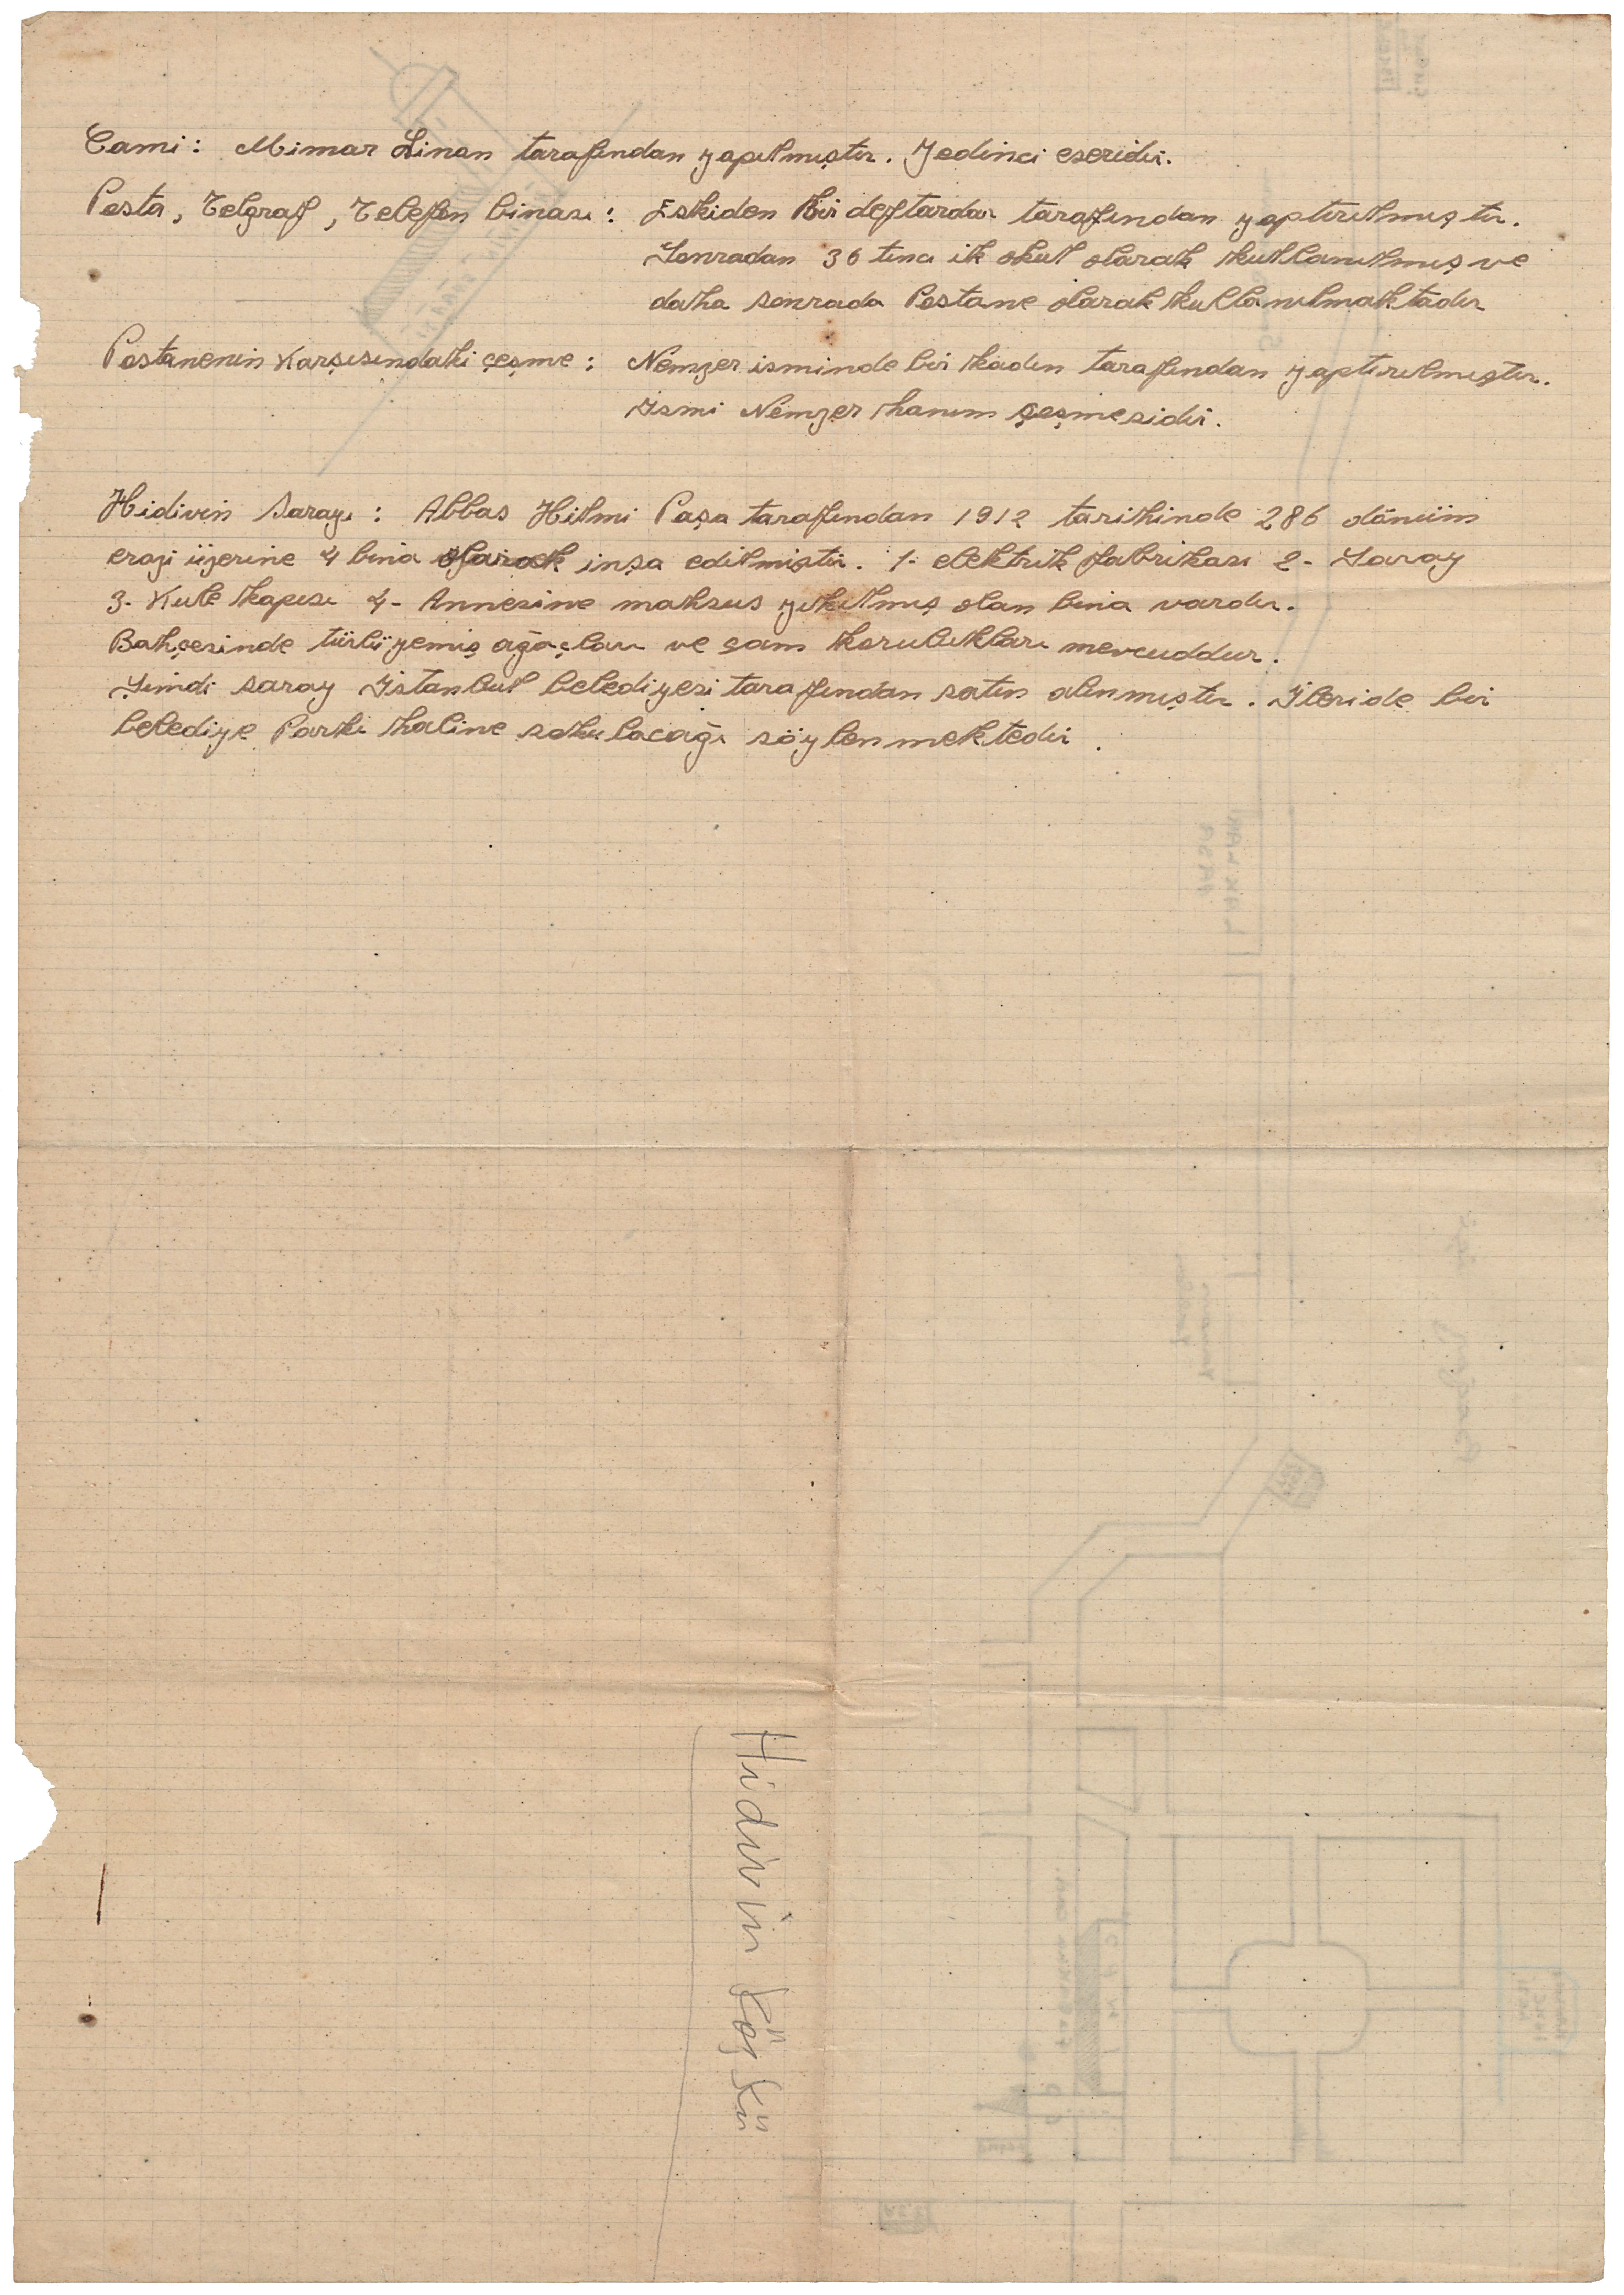 Cami: Mimar Sinan tarafından yapılmıştır. Yedinci eseridir.
Posta, Telgraf, Telefon binası: Eskiden Bir defterdar tarafından yaptırılmıştır.
Sonradan 36 tıncı ilk okul olarak kullanılmış ve
daha sonrada Postane olarak kullanılmaktadır
Postanenin Karşısındaki çeşme: Nemzer isminde bir kadın tarafından yaptırılmıştır.
İsmi Nemzer hanım çeşmesidir.
Hidivin Sarayı: Abbas Hilmi Paşa tarafından 1912 tarihinde 286 dönüm
erazi üzerine 4 bina olarak inşa edilmiştir. 1- elektrik fabrikası 2- Saray
3- Kule kapısı 4- Annesine mahsus yıkılmış olan bina vardır.
Bahçesinde türlü yemiş ağaçları ve çam korulukları mevcuddur.
Şimdi saray İstanbul belediyesi tarafından satın alınmıştır. İleride bir
belediye Parkı haline sokulacağı söylenmektedir.
Hidivin Köşkü